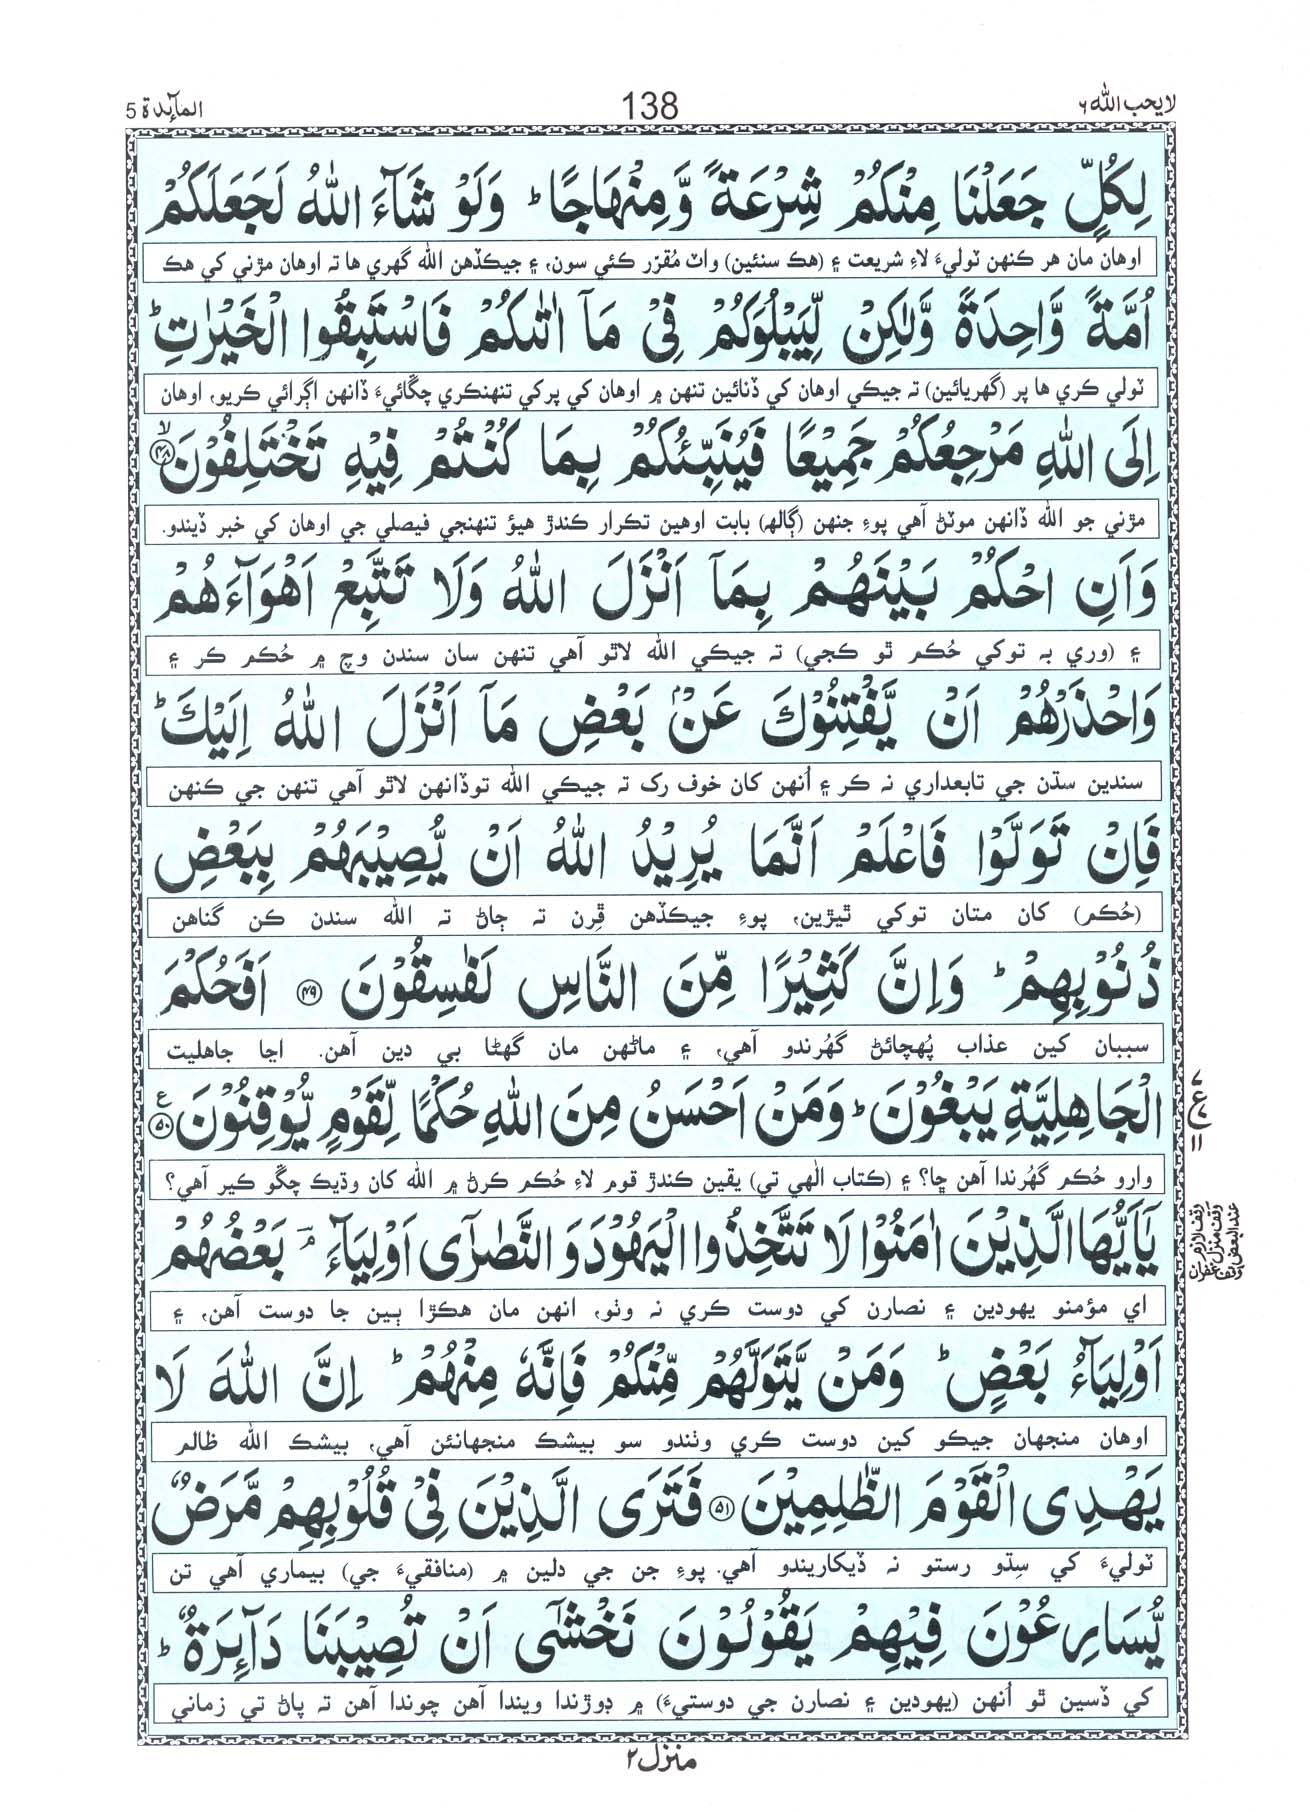 لا يحب الله ٦
138
المآئدة 5
لِكُلٍّ جَعَلْنَا مِنْكُمْ شِرْعَةً وَّمِنْهَاجًا ؕ وَلَوْ شَآءَ اللّٰهُ لَجَعَلَكُمْ
اوهان مان هر ڪنهن ٽوليءَ لاءِ شريعت ۽ (هڪ سنئين) واٽ مُقرّر ڪئي سون، ۽ جيڪڏهن الله گهري ها ته اوهان مڙني کي هڪ
اُمَّةً وَّاحِدَةً وَّلٰكِنْ لِّيَبْلُوَكُمْ فِيْ مَآ اٰتٰىكُمْ فَاسْتَبِقُوا الْخَيْرٰتِ ؕ
ٽولي ڪري ها پر (گهريائين) ته جيڪي اوهان کي ڏنائين تنهن ۾ اوهان کي پرکي تنهنڪري چڱائيءَ ڏانهن اڳرائي ڪريو، اوهان
اِلَى اللّٰهِ مَرْجِعُكُمْ جَمِيْعًا فَيُنَبِّئُكُمْ بِمَا كُنْتُمْ فِيْهِ تَخْتَلِفُوْنَ ۙ﴿۴۸﴾
مڙني جو الله ڏانهن موٽڻ آهي پوءِ جنهن (ڳالهہ) بابت اوهين تڪرار ڪندڙ هيؤ تنهنجي فيصلي جي اوهان کي خبر ڏيندو.
وَاَنِ احْكُمْ بَيْنَهُمْ بِمَآ اَنْزَلَ اللّٰهُ وَلَا تَتَّبِعْ اَهْوَآءَهُمْ
۽ (وري به توکي حُڪم ٿو ڪجي) ته جيڪي الله لاٿو آهي تنهن سان سندن وچ ۾ حُڪم ڪر ۽
وَاحْذَرْهُمْ اَنْ يَّفْتِنُوْكَ عَنْۢ بَعْضِ مَآ اَنْزَلَ اللّٰهُ اِلَيْكَ ؕ
سندين سڌن جي تابعداري نه ڪر ۽ اُنهن کان خوف رک ته جيڪي الله توڏانهن لاٿو آهي تنهن جي ڪنهن
فَاِنْ تَوَلَّوْا فَاعْلَمْ اَنَّمَا يُرِيْدُ اللّٰهُ اَنْ يُّصِيْبَهُمْ بِبَعْضِ
(حُڪم) کان متان توکي ٿيڙين، پوءِ جيڪڏهن ڦِرن ته ڄاڻ ته الله سندن ڪن گناهن
ذُنُوْبِهِمْ ؕ وَاِنَّ كَثِيْرًا مِّنَ النَّاسِ لَفٰسِقُوْنَ ﴿۴۹﴾ اَفَحُكْمَ
سببان کين عذاب پُهچائڻ گهُرندو آهي، ۽ ماڻهن مان گهڻا بي دين آهن. اڃا جاهليت
الْجَاهِلِيَّةِ يَبْغُوْنَ ؕ وَمَنْ اَحْسَنُ مِنَ اللّٰهِ حُكْمًا لِّقَوْمٍ يُّوْقِنُوْنَ ﴿۵۰﴾ ع
۷
ع
۱۱
وارو حُڪم گهُرندا آهن ڇا؟ ۽ (ڪتاب الٰهي تي) يقين ڪندڙ قوم لاءِ حُڪم ڪرڻ ۾ الله کان وڌيڪ چڱو ڪير آهي؟
يٰٓاَيُّهَا الَّذِيْنَ اٰمَنُوْا لَا تَتَّخِذُوا الْيَهُوْدَ وَالنَّصٰرٰٓى اَوْلِيَآءَ ۘ بَعْضُهُمْ
وقف لازم
وقف منزل
اي مؤمنو يهودين ۽ نصارن کي دوست ڪري نہ وٺو، انهن مان هڪڙا ٻين جا دوست آهن، ۽
اَوْلِيَآءُ بَعْضٍ ؕ وَمَنْ يَّتَوَلَّهُمْ مِّنْكُمْ فَاِنَّهٗ مِنْهُمْ ؕ اِنَّ اللّٰهَ لَا
اوهان منجهان جيڪو کين دوست ڪري وٺندو سو بيشڪ منجهانئن آهي، بيشڪ الله ظالم
يَهْدِى الْقَوْمَ الظّٰلِمِيْنَ ﴿۵۱﴾ فَتَرَى الَّذِيْنَ فِيْ قُلُوْبِهِمْ مَّرَضٌ
ٽوليءَ کي سِڌو رستو نہ ڏيکاريندو آهي. پوءِ جن جي دلين ۾ (منافقيءَ جي) بيماري آهي تن
يُّسَارِعُوْنَ فِيْهِمْ يَقُوْلُوْنَ نَخْشٰٓى اَنْ تُصِيْبَنَا دَآئِرَةٌ ؕ
کي ڏسين ٿو اُنهن (يهودين ۽ نصارن جي دوستيءَ) ۾ ڊوڙندا ويندا آهن چوندا آهن ته پاڻ تي زماني
منزل ۲